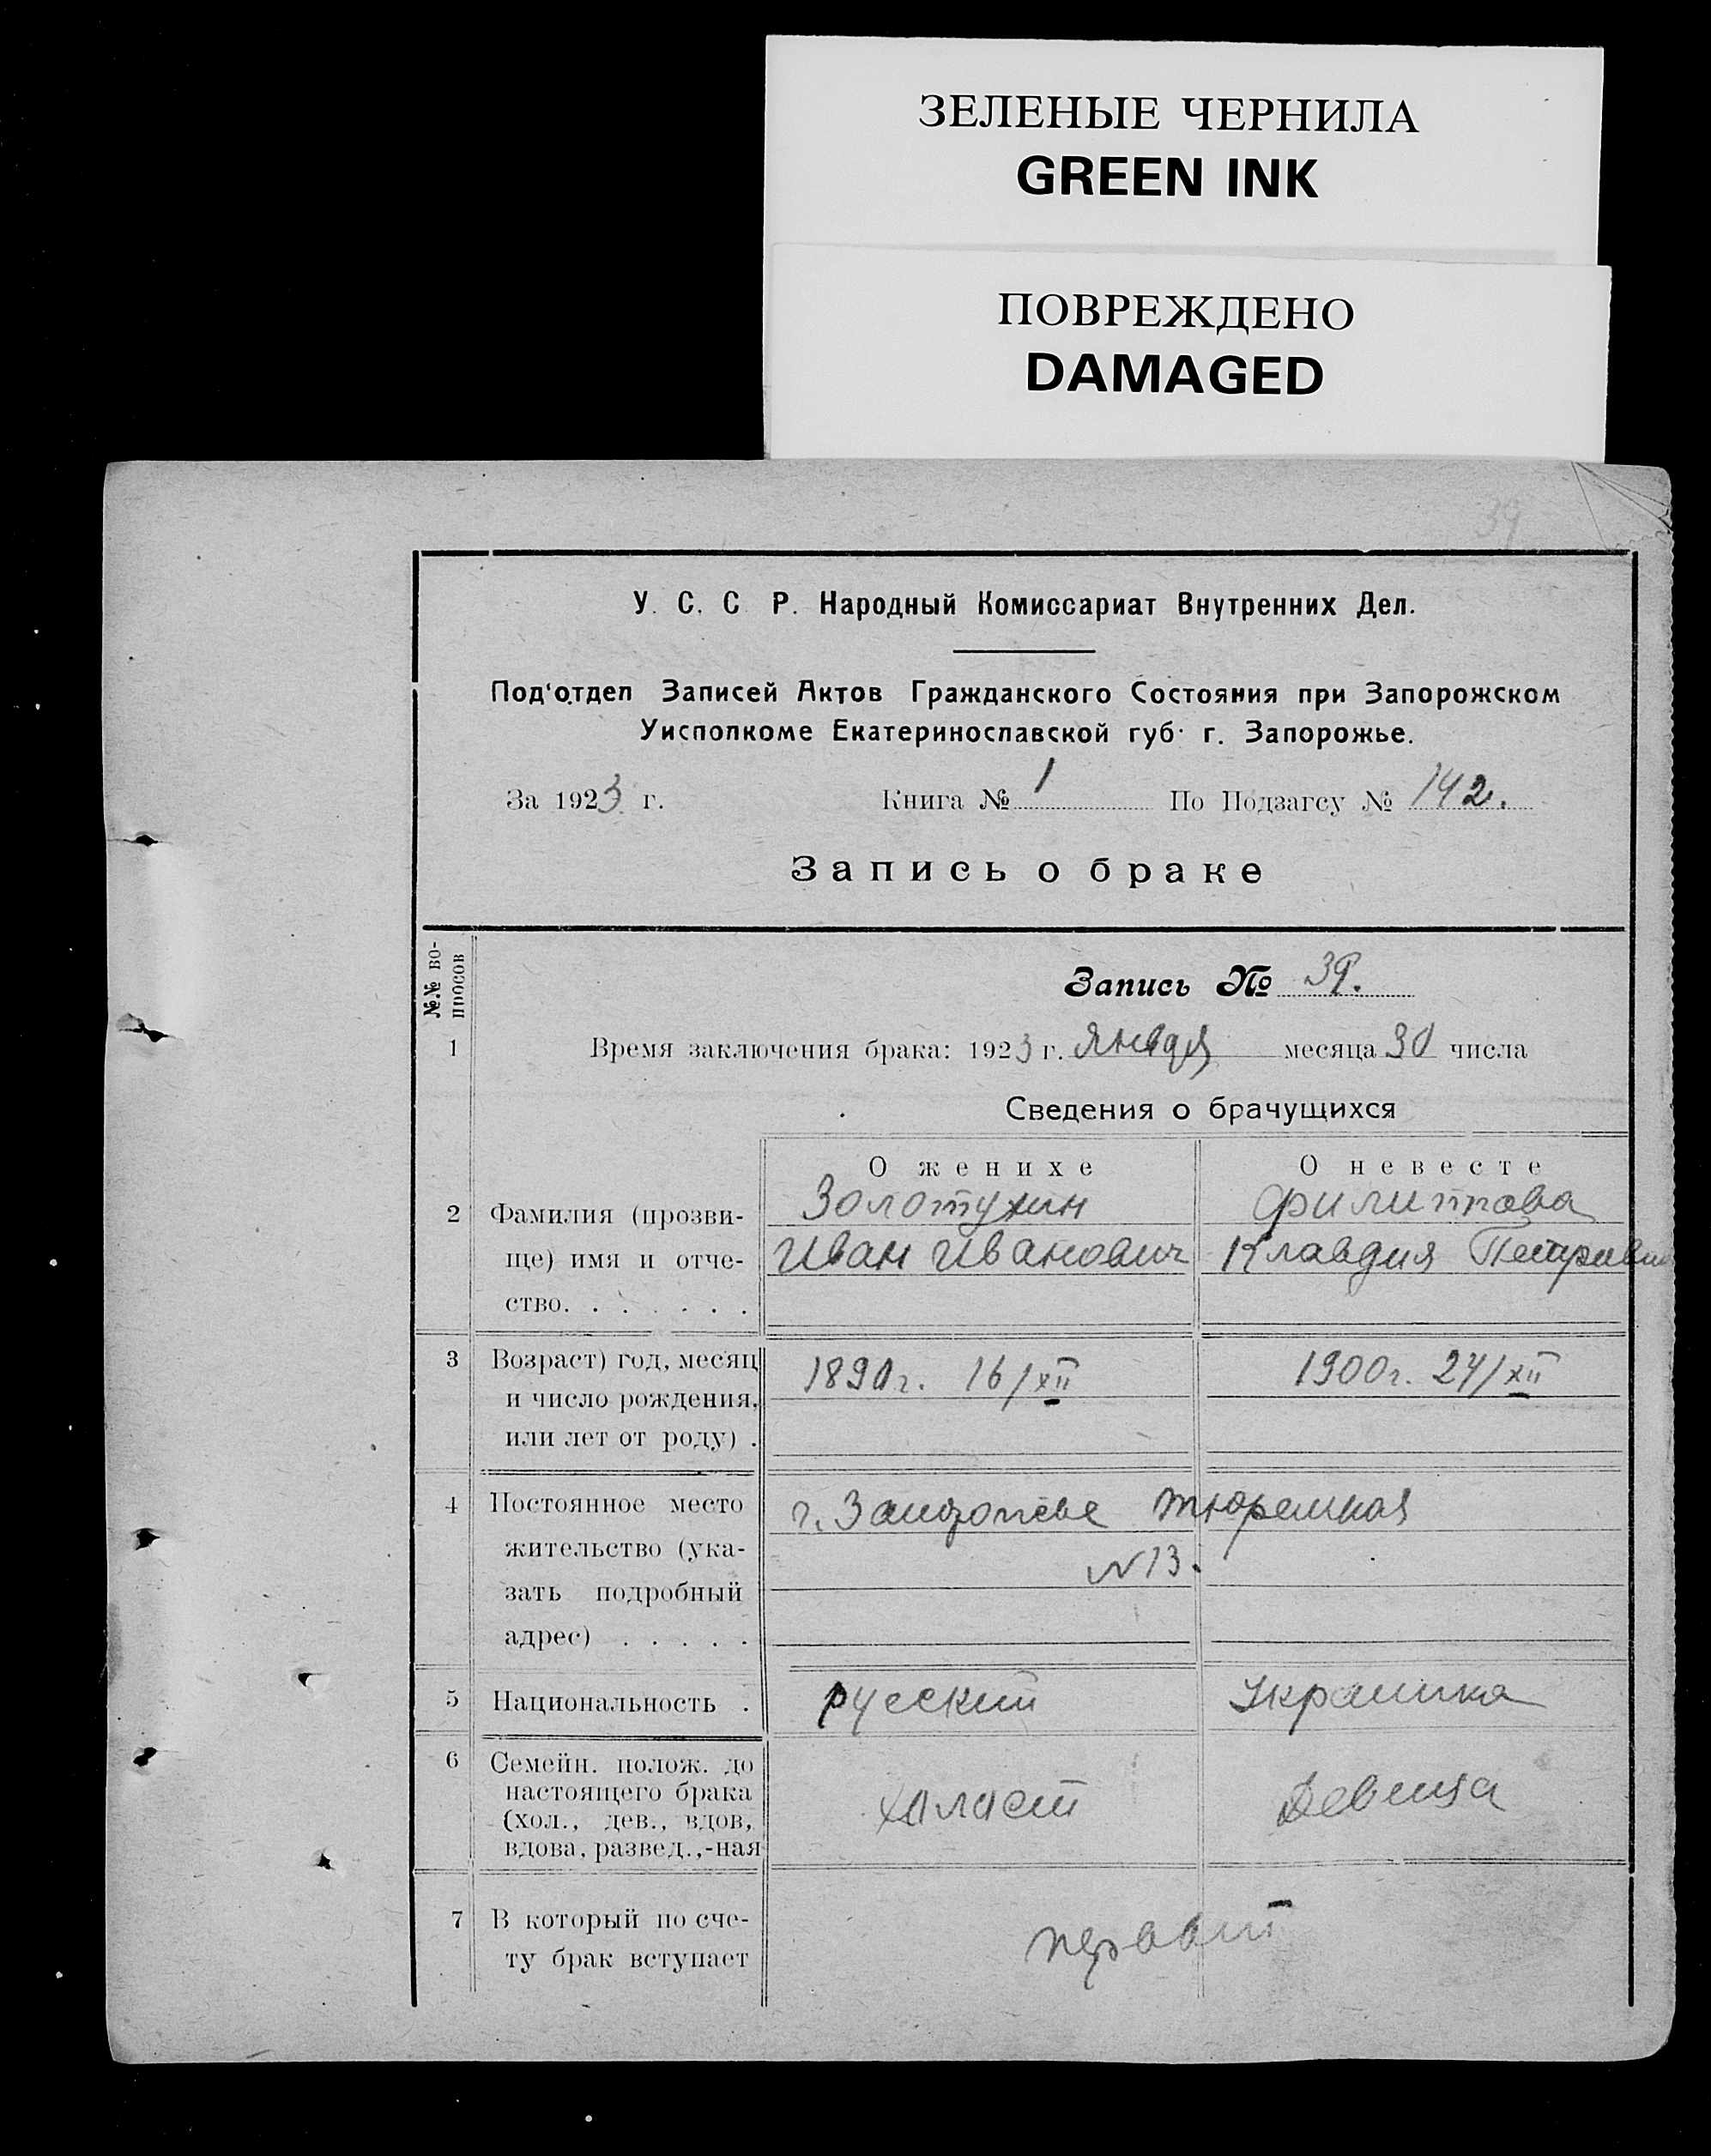 ЗЕЛЕНЫЕ ЧЕРНИЛА
GREEN INK
ПОВРЕЖДЕНО
DAMAGED
39
У. С. С Р. Народный Комиссариат Внутренних Дел.
Под'отдел Записей Актов Гражданского Состояния при Запорожском
Уисполкоме Екатеринославской губ. г. Запорожье.
За 1923 г. Книга № 1 По Подзагсу № 142.
Запись о браке
№№ во-
просов
Запись № 39.
1 Время заключения брака: 1923 г. Января месяца 30 числа
Сведения о брачущихся
О женихе О невесте
2 Фамилия (прозви- Золотухин Филиппова
ще) имя и отче- Иван Иванович Клавдия Петровна
ство. . . . . . .
3 Возраст) год, месяц 1890г. 16/XII 1900г. 24/XII
и число рождения,
или лет от роду) .
4 Постоянное место г. Запорожье Тюремная
жительство (ука- N13.
зать подробный
адрес) . . . . .
5 Национальность . русский Украинка
6 Семейн. полож. до
настоящего брака
(хол., дев., вдов, холост Девица
вдова, развед.,-ная
7 В который по сче- первый
ту брак вступает